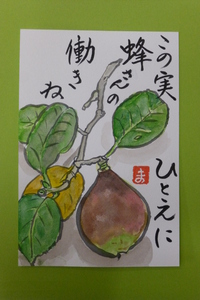 この実
ひとえに
蜂さんの
働きね
ま